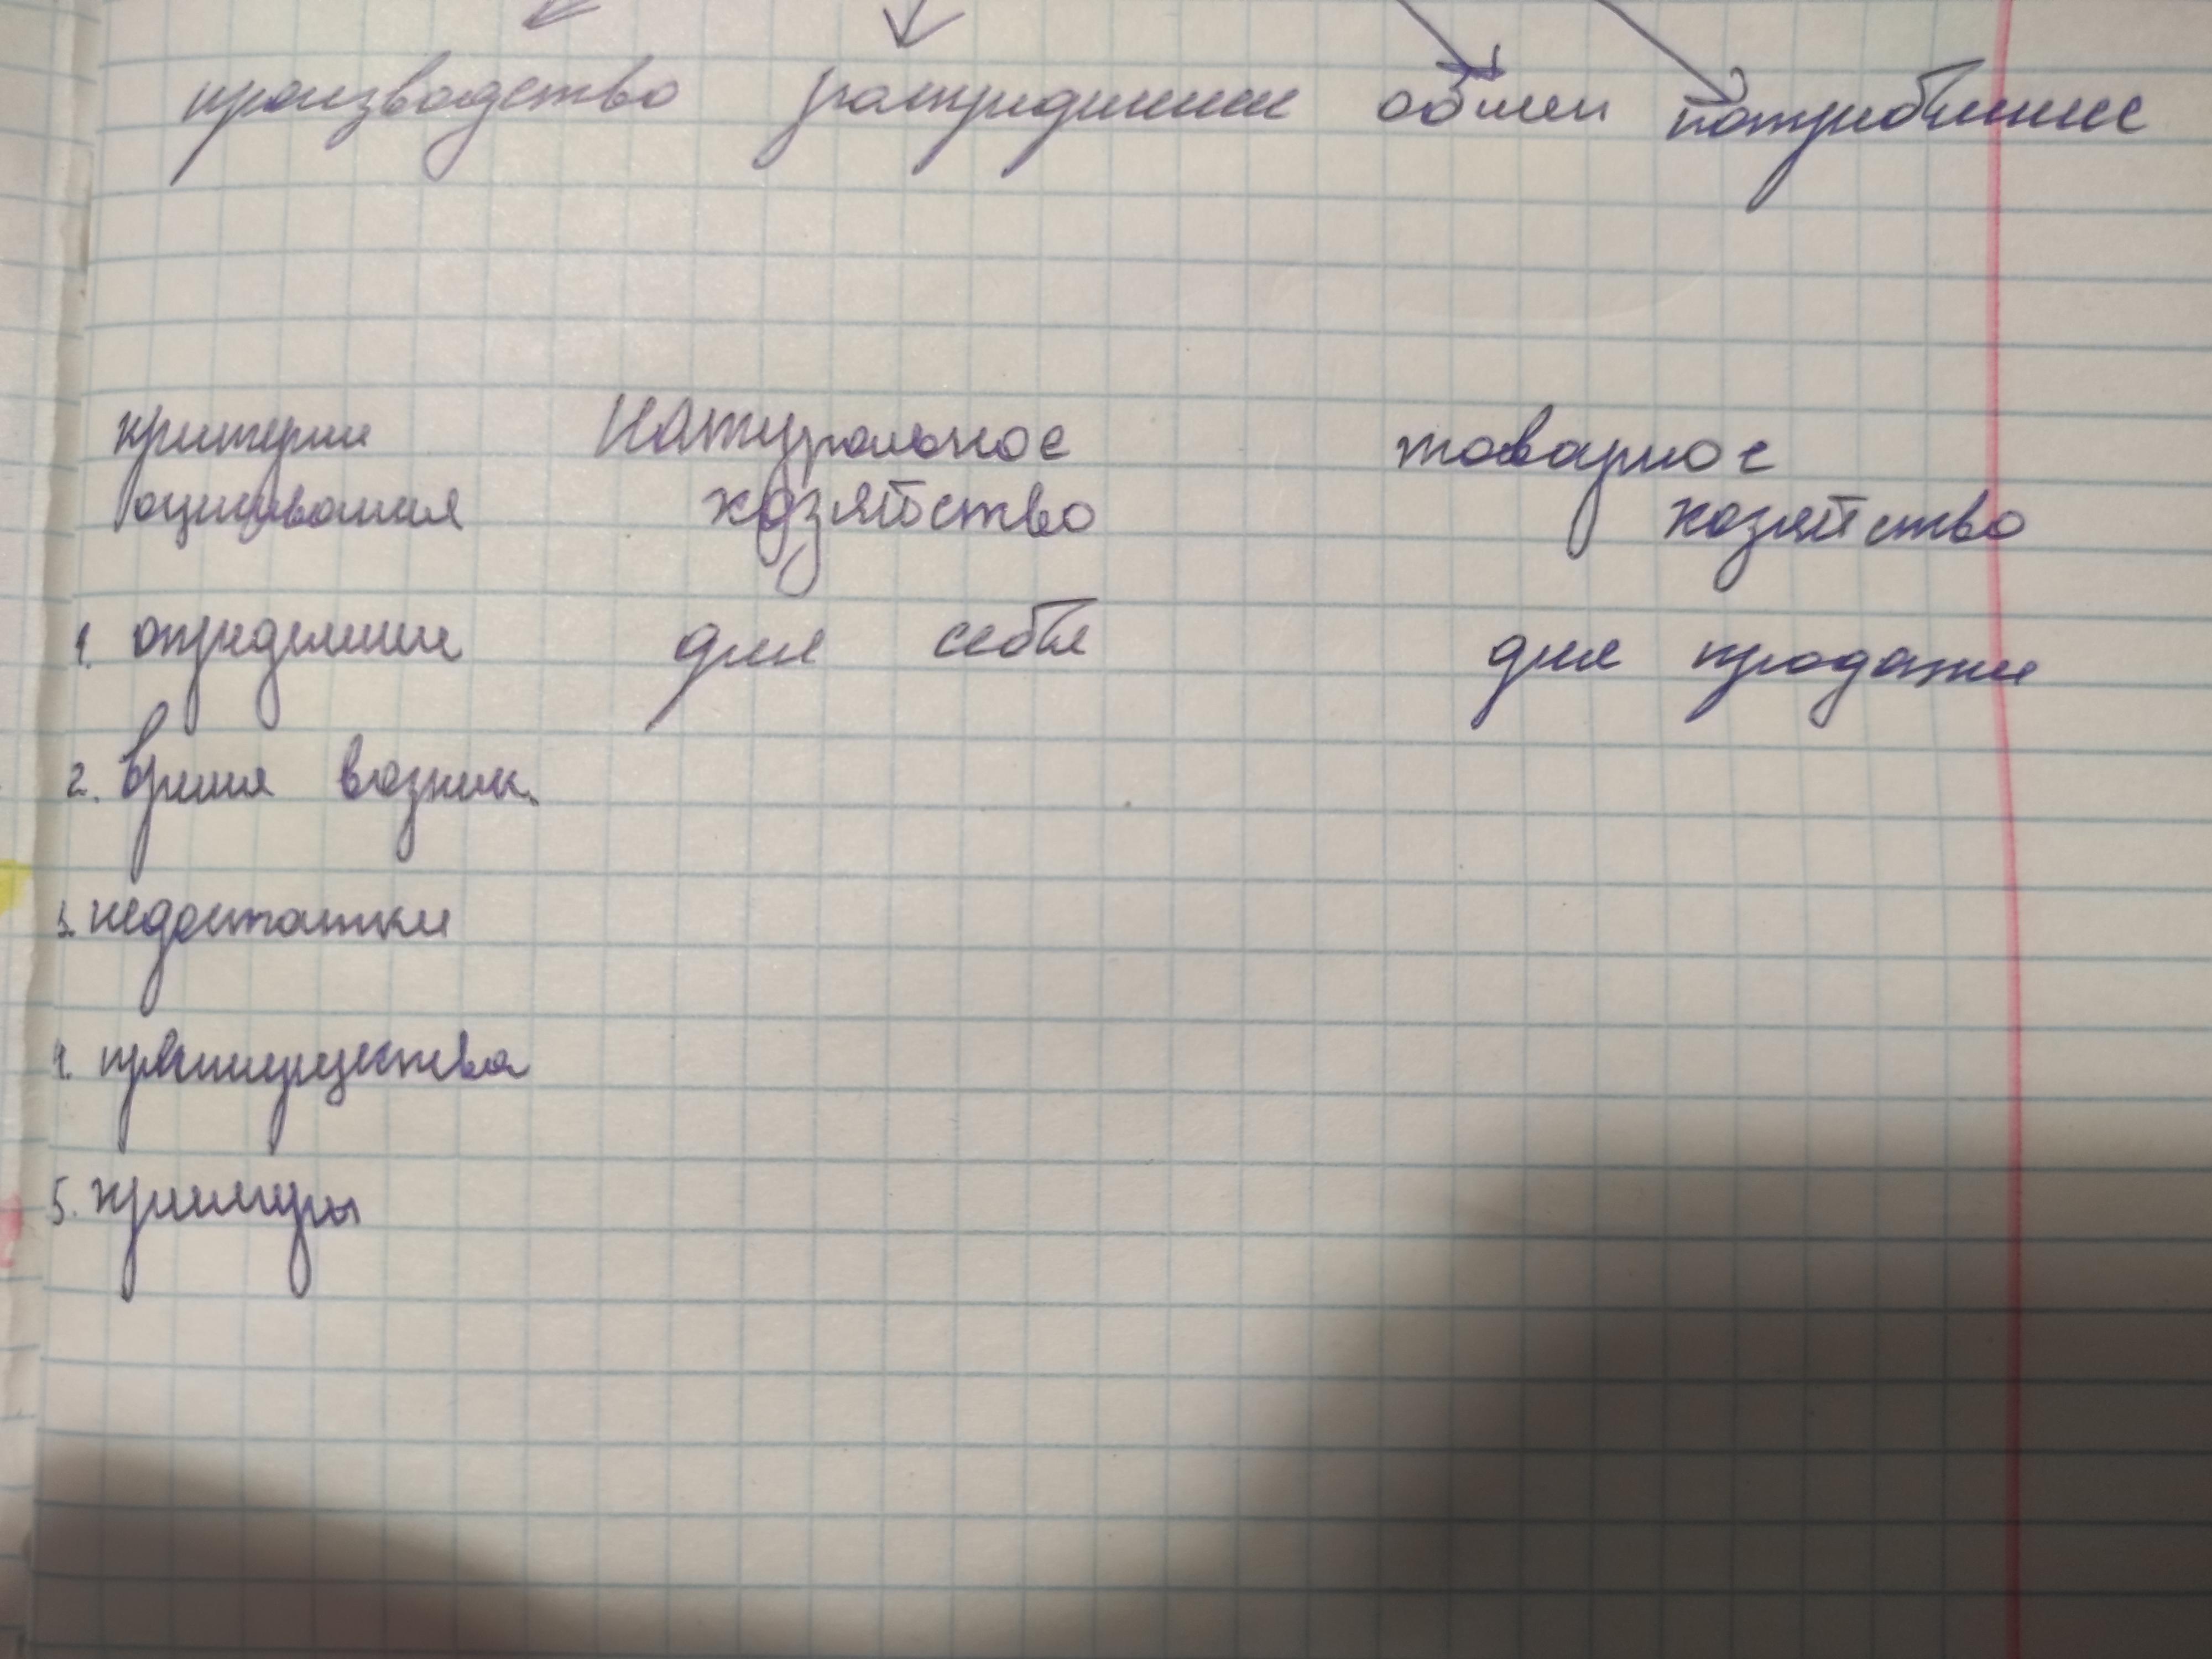 производство распределение обмен потребление
критерии Натуральное товарное
оценивания хозяйство хозяйство
1. определение для себя для продажи
2. Время возник.
3. недостатки
4. преимущества
5. примеры